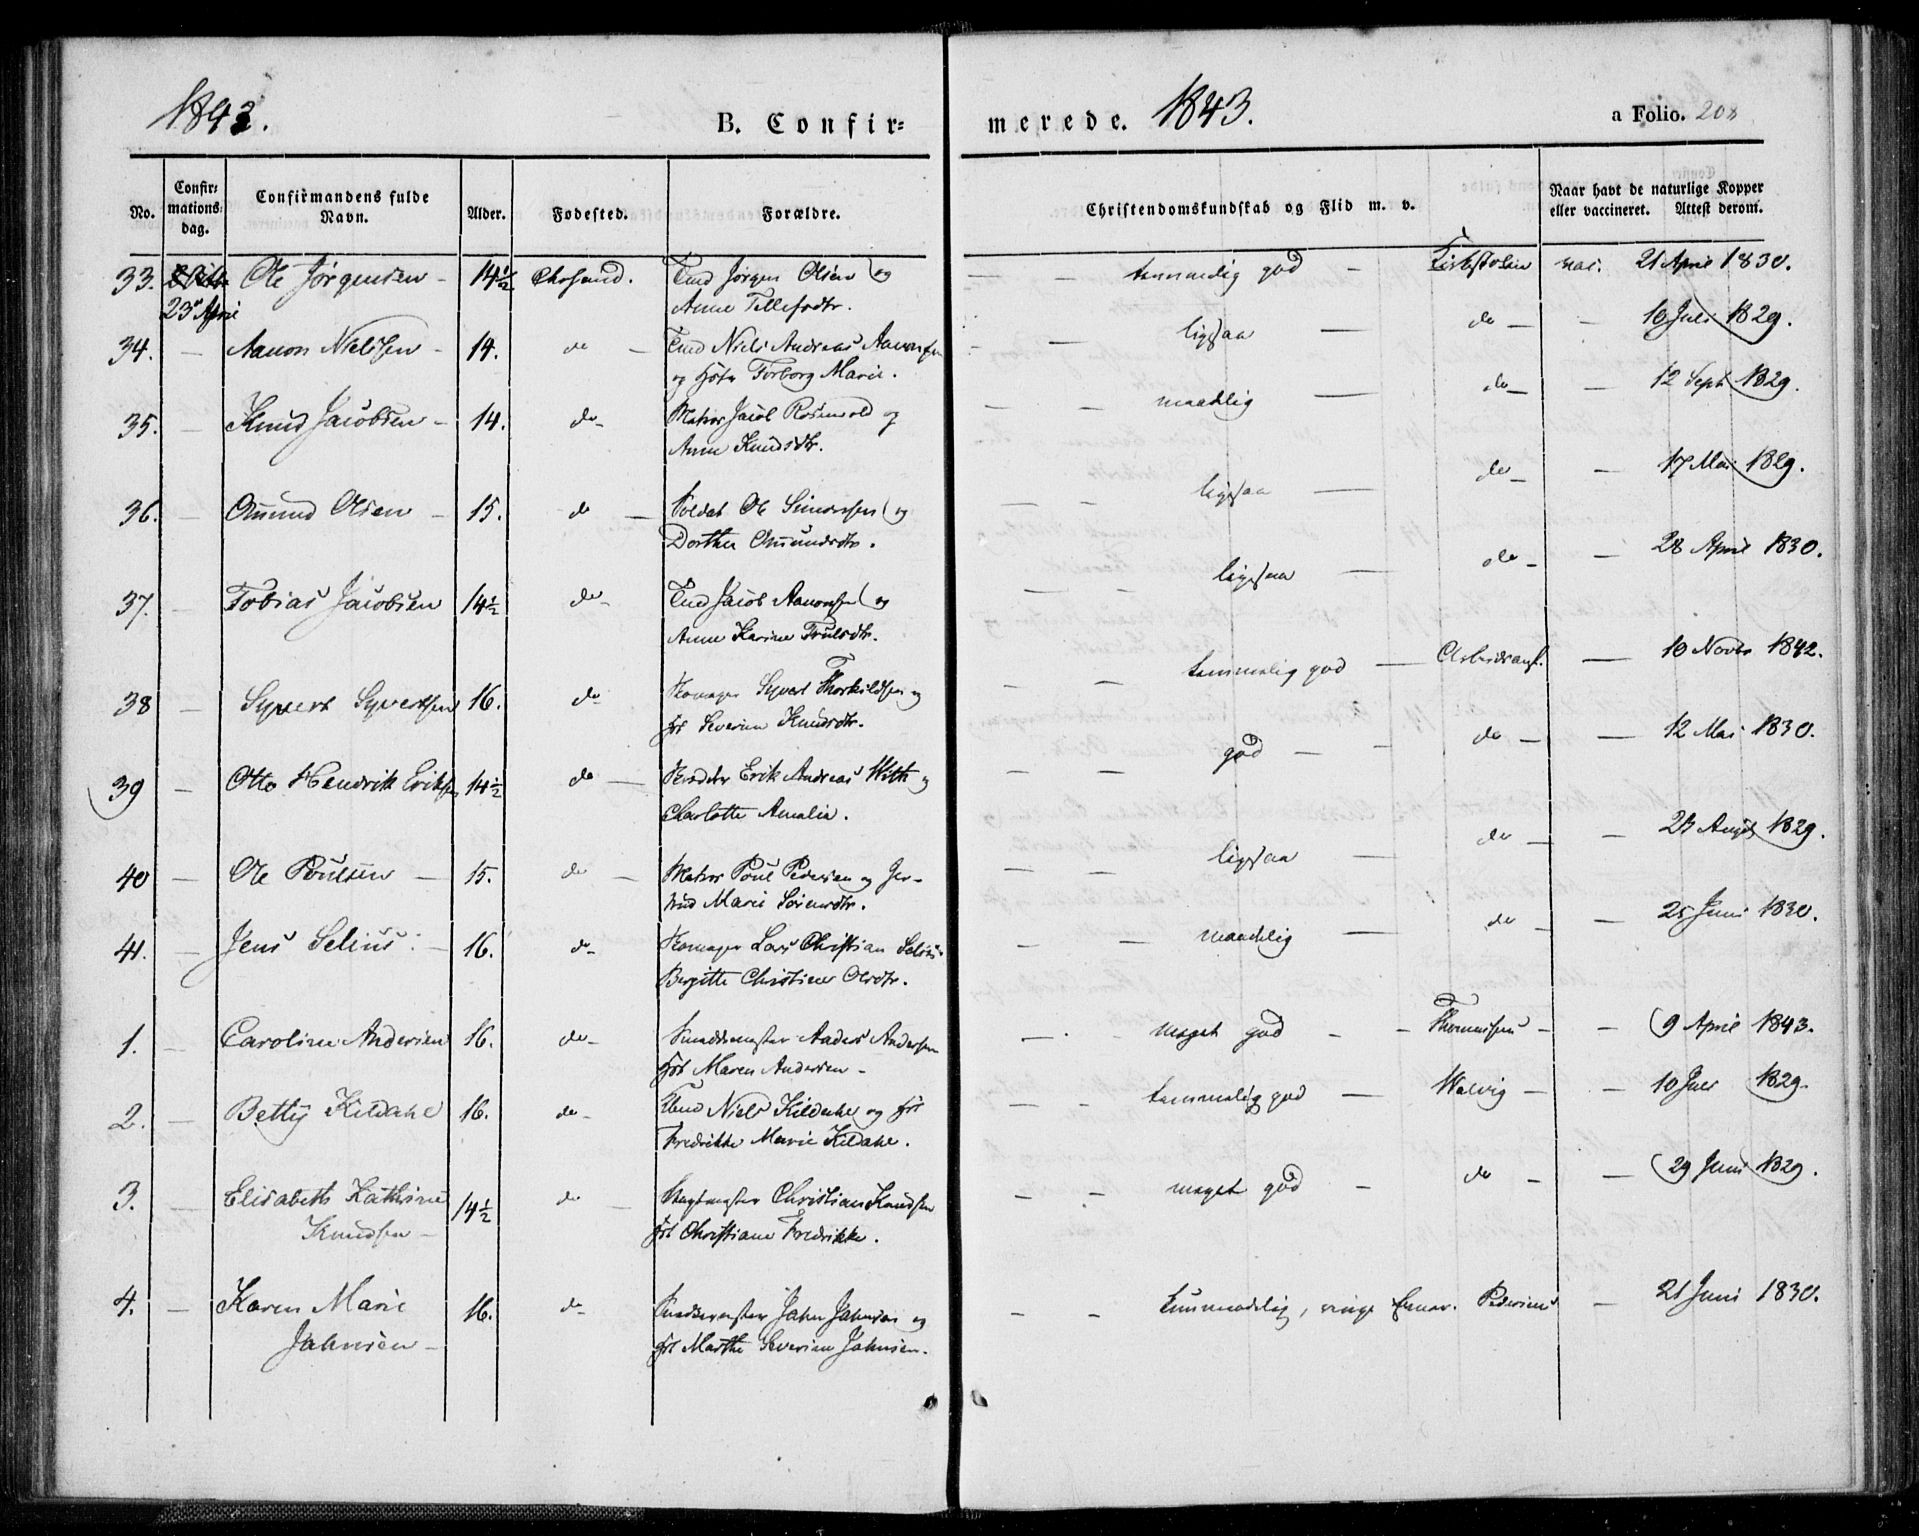 1843.
B. Confir=
merede. 1843.
a Folio. 208
No.
Confir=
mations=
dag.
Confirmandens fulde
Navn.
Alder.
Fødested.
Forældre.
Christendomskundskab og Flid m. v.
Naar havt de naturlige Kopper
eller vaccineret. Attest derom.
33. Ole Jørgensen - 14½ Chrsand. Tmd Jørgen Olsen og temmelig god - vac. 21 April 1830.
23de April Anne Tellefsdtr.
34. - Aanon Nielssen - 14. do - Tmd Niels Andreas Aanonsen ligesaa - do - - 10 Juli 1829.
og Hstr Torborg Marie.
35. - Knud Jacobsen - 14. do - Matros Jacob Rosenvold og maadelig - do - - 12 Sept 1829.
Anne Knudsdtr.
36. - Omund Olsen - 15. do - Soldat Ole Simonsen og ligesaa - do - - 17 Mai 1829.
Dorthea Omundsdtr.
37. - Tobias Jacobsen 14½ do - Tmd Jacob Aanonsen og ligesaa - do - - 28 April 1830.
Anne Karine Trulsdtr.
38 - Syvert Syvertsen 16. do Syvert Thorkildsen og temmelig god - Arbeidsanst. - 10 Novbr 1842.
Severine Knudsdtr.
39 - Otto Hendrik Eriksen 14½ do - Erik Andreas With og god - - do - - 12 Mai 1830.
Charlotte Amalia.
40 - Ole Poulsen - 15. do - Matros Poul Pedersen og Ger- ligesaa - do - - 28 Augst 1829.
trud Marie Sørensdtr.
41. - Jens Selius. - 16. do - Lars Christian Selius maadelig - do - 25 Juni 1830.
Birgitte Christine Olsdtr.
1. - Caroline Andersen 16. do - Anders Andersen meget god - - Thomassen - - 9 April 1843.
Maren Andersen -
2. - Betty Kildahl 16. do - Niels Kildahl og temmelig god - Walvig - - 10 Juli 1829.
Fredrikke Marie Kildahl.
3. - Elisabeth Kathrine 14½ do - Christian Knudsen meget god - do - - 29 Juni 1829.
Knudsen - Christiane Fredrikke.
4. - Karen Marie 16. do - Jahn Jahnsen og ringe Pedersens - 21 Juni 1830.
Jahnsen - Marthe Severine Jahnsen.